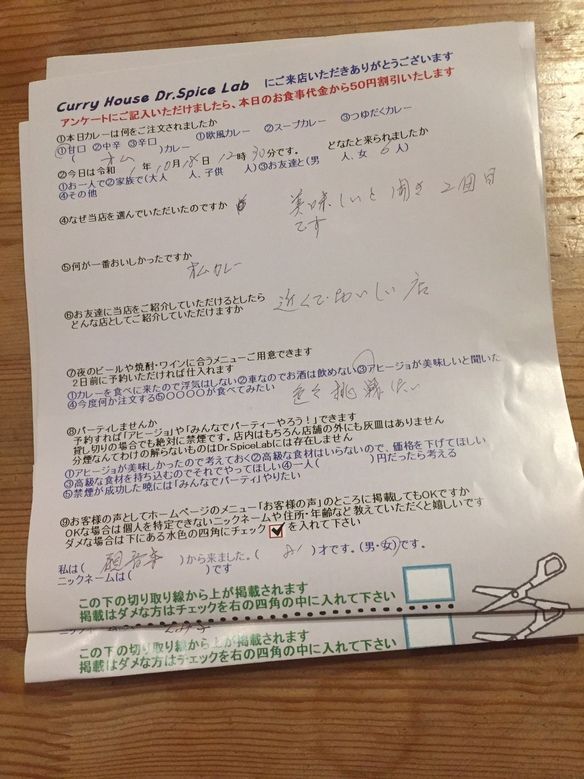 Curry House Dr.Spice Lab にご来店いただきありがとうございます
アンケートにご記入いただけましたら、本日のお食事代金から50円割引いたします
①本日カレーは何をご注文されましたか
①甘口 ②中辛 ③辛口 ①欧風カレー ②スープカレー ③つゆだくカレー
( オム )カレー
②今日は令和 1年10月18日12時30分です。 どなたと来られましたか
①お一人で②家族で(大人 人、子供 人)③お友達と(男 人、女 6人)
④その他
④なぜ当店を選んでいただいたのですか 美味しいと聞き2回目
です
⑤何が一番おいしかったですか
オムカレー
⑥お友達に当店をご紹介していただけるとしたら 近くておいしい店
どんな店としてご紹介していただけますか
⑦夜のビールや焼酎・ワインに合うメニューご用意できます
2日前に予約いただければ仕入れます
①カレーを食べに来たので浮気はしない②車なのでお酒は飲めない③アヒージョが美味しいと聞いた
④今度何か注文する⑤〇〇〇〇が食べてみたい 色々挑戦したい
⑧パーティしませんか、
予約すれば「アヒージョ」や「みんなでパーティーやろう!」できます
貸し切りの場合でも絶対に禁煙です。店内はもちろん店舗の外にも灰皿はありません
分煙なんてわけの解らないものはDr.SpiceLabには存在しません
①アヒージョが美味しかったので考えておく②高級な食材はいらないので、価格を下げてほしい
③高級な食材を持ち込むのでそれでやってほしい④一人( )円だったら考える
⑤禁煙が成功した暁には「みんなでパーティ」やりたい
⑨お客様の声としてホームページのメニュー「お客様の声」のところに掲載してもOKですか
OKな場合は個人を特定できないニックネームや住所・年齢など教えていただくと嬉しいです
ダメな場合は下にある水色の四角にチェック を入れて下さい
私は( 観音寺 )から来ました。( )才です。(男・女)です。
ニックネームは( )です
この下の切り取り線から上が掲載されます
掲載はダメな方はチェックを右の四角の中に入れて下さい
この下の切り取り線から上が掲載されます
掲載はダメな方はチェックを右の四角の中に入れて下さい